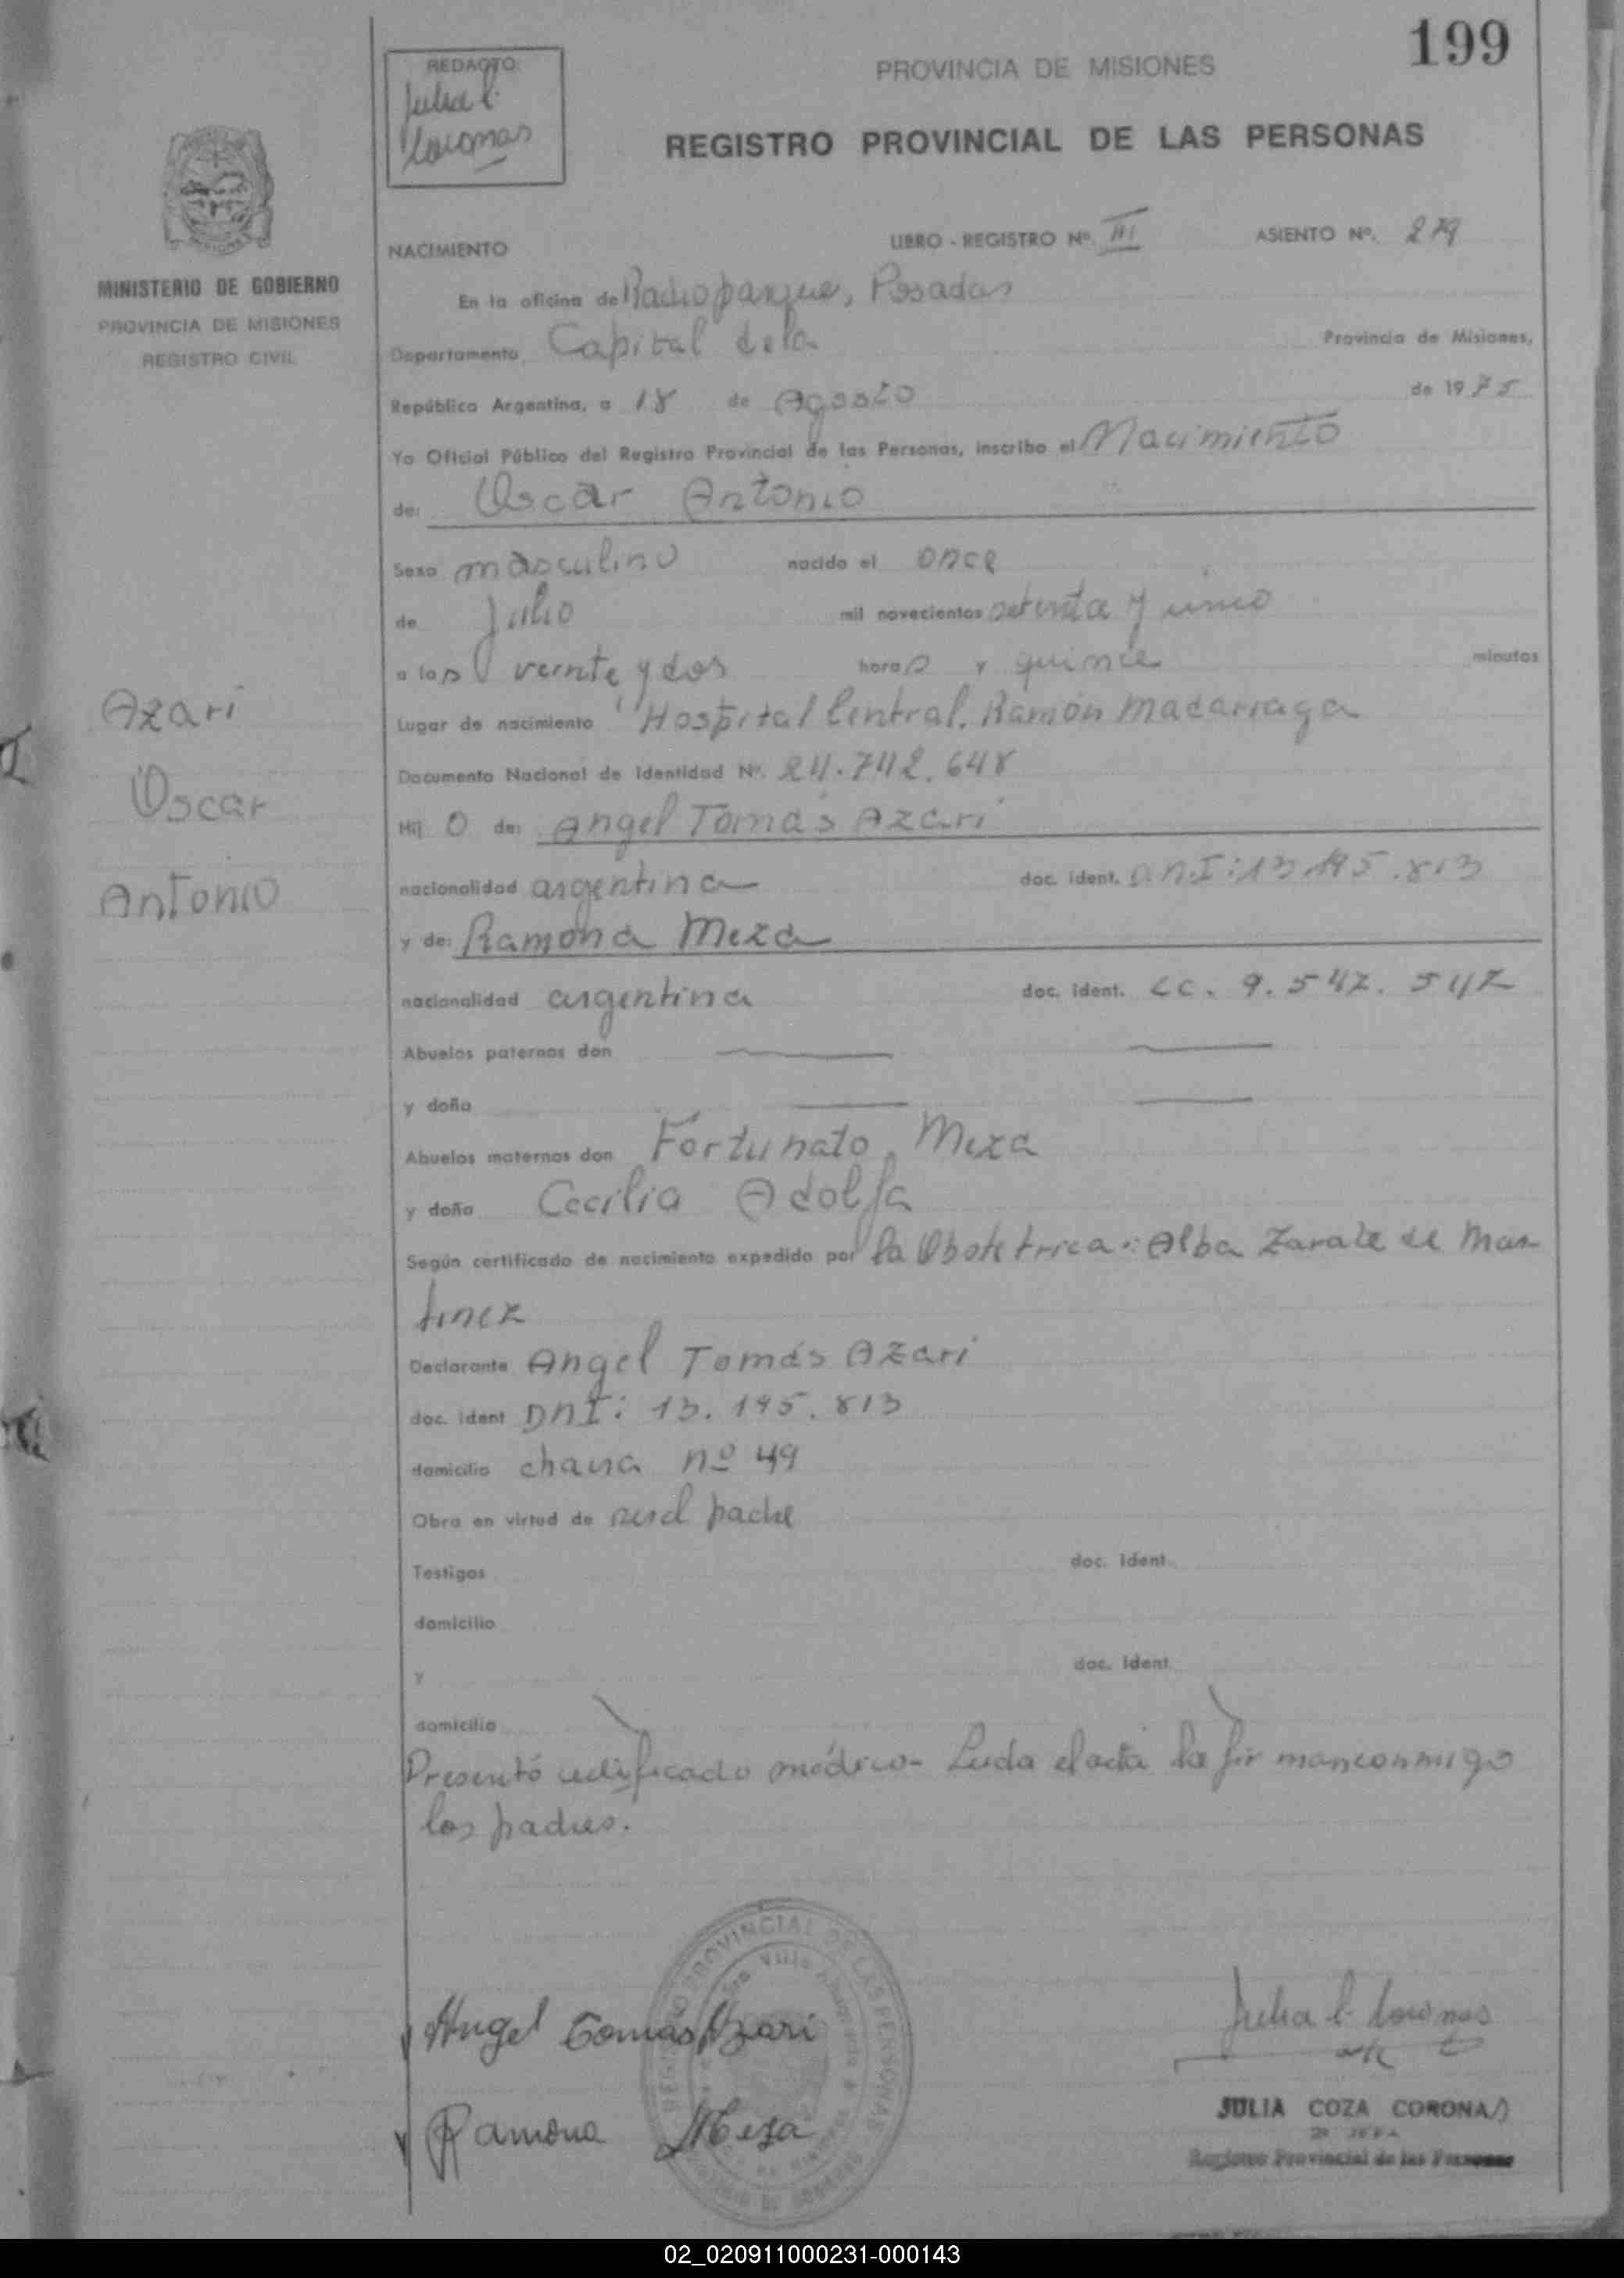 199
REDACTO:
Julia C.
Coronas
PROVINCIA DE MISIONES
REGISTRO PROVINCIAL DE LAS PERSONAS
MINISTERIO DE GOBIERNO
PROVINCIA DE MISIONES
REGISTRO CIVIL
NACIMIENTO
LIBRO - REGISTRO Nº. III ASIENTO Nº. 279
En la oficina de Radioparque, Posadas
Departamento Capital de la Provincia de Misiones,
República Argentina, a 18 de Agosto de 1975
Yo Oficial Público del Registro Provincial de las Personas, inscribo el Nacimiento
de: Oscar Antonio
Sexo masculino nacido el once
de Julio mil novecientos setenta y cinco
a las veinte y dos horas y quince minutos
Lugar de nacimiento Hospital Central. Ramón Madarraga
Documento Nacional de Identidad Nº. 24.742.648
Hij o de: Angel Tomás Azari
nacionalidad argentina doc. ident. D.N.I: 13.195.813
y de: Ramona Meza
nacionalidad argentina doc. ident. CC. 9.547.547
Abuelos paternos don
y doña
Abuelos maternos don Fortunato Meza
y doña Cecilia Adolfa
Según certificado de nacimiento expedido por la Obstetrica: Alba Zarate de Mar-
tinez
Declarante Angel Tomás Azari
doc. ident DNI: 13.195.813
domicilio chacra nº 49
Obra en virtud de ser el padre
Testigos doc. ident.
domicilio
y doc. ident
domicilio
Presentó certificado médico- Leida el acta la firman conmigo
los padres.
Azari
Oscar
Antonio
Angel Tomás Azari
Ramona Meza
REGISTRO PROVINCIAL DE LAS PERSONAS
Julia C. Coronas
JULIA COZA CORONAS
Registro Provincial de las Personas
02_020911000231-000143